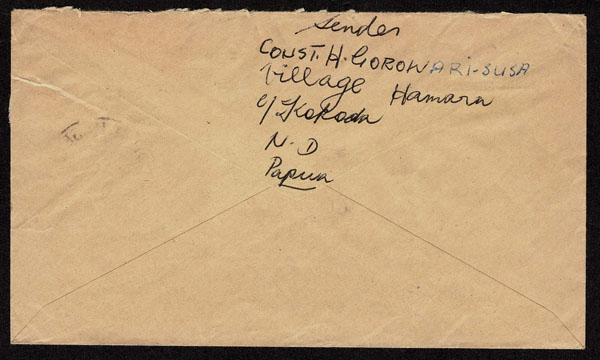 Sender
CONST. H. GOROWARI-SUSA
Village Hamara
c/ Kokoda
N. D
Papua